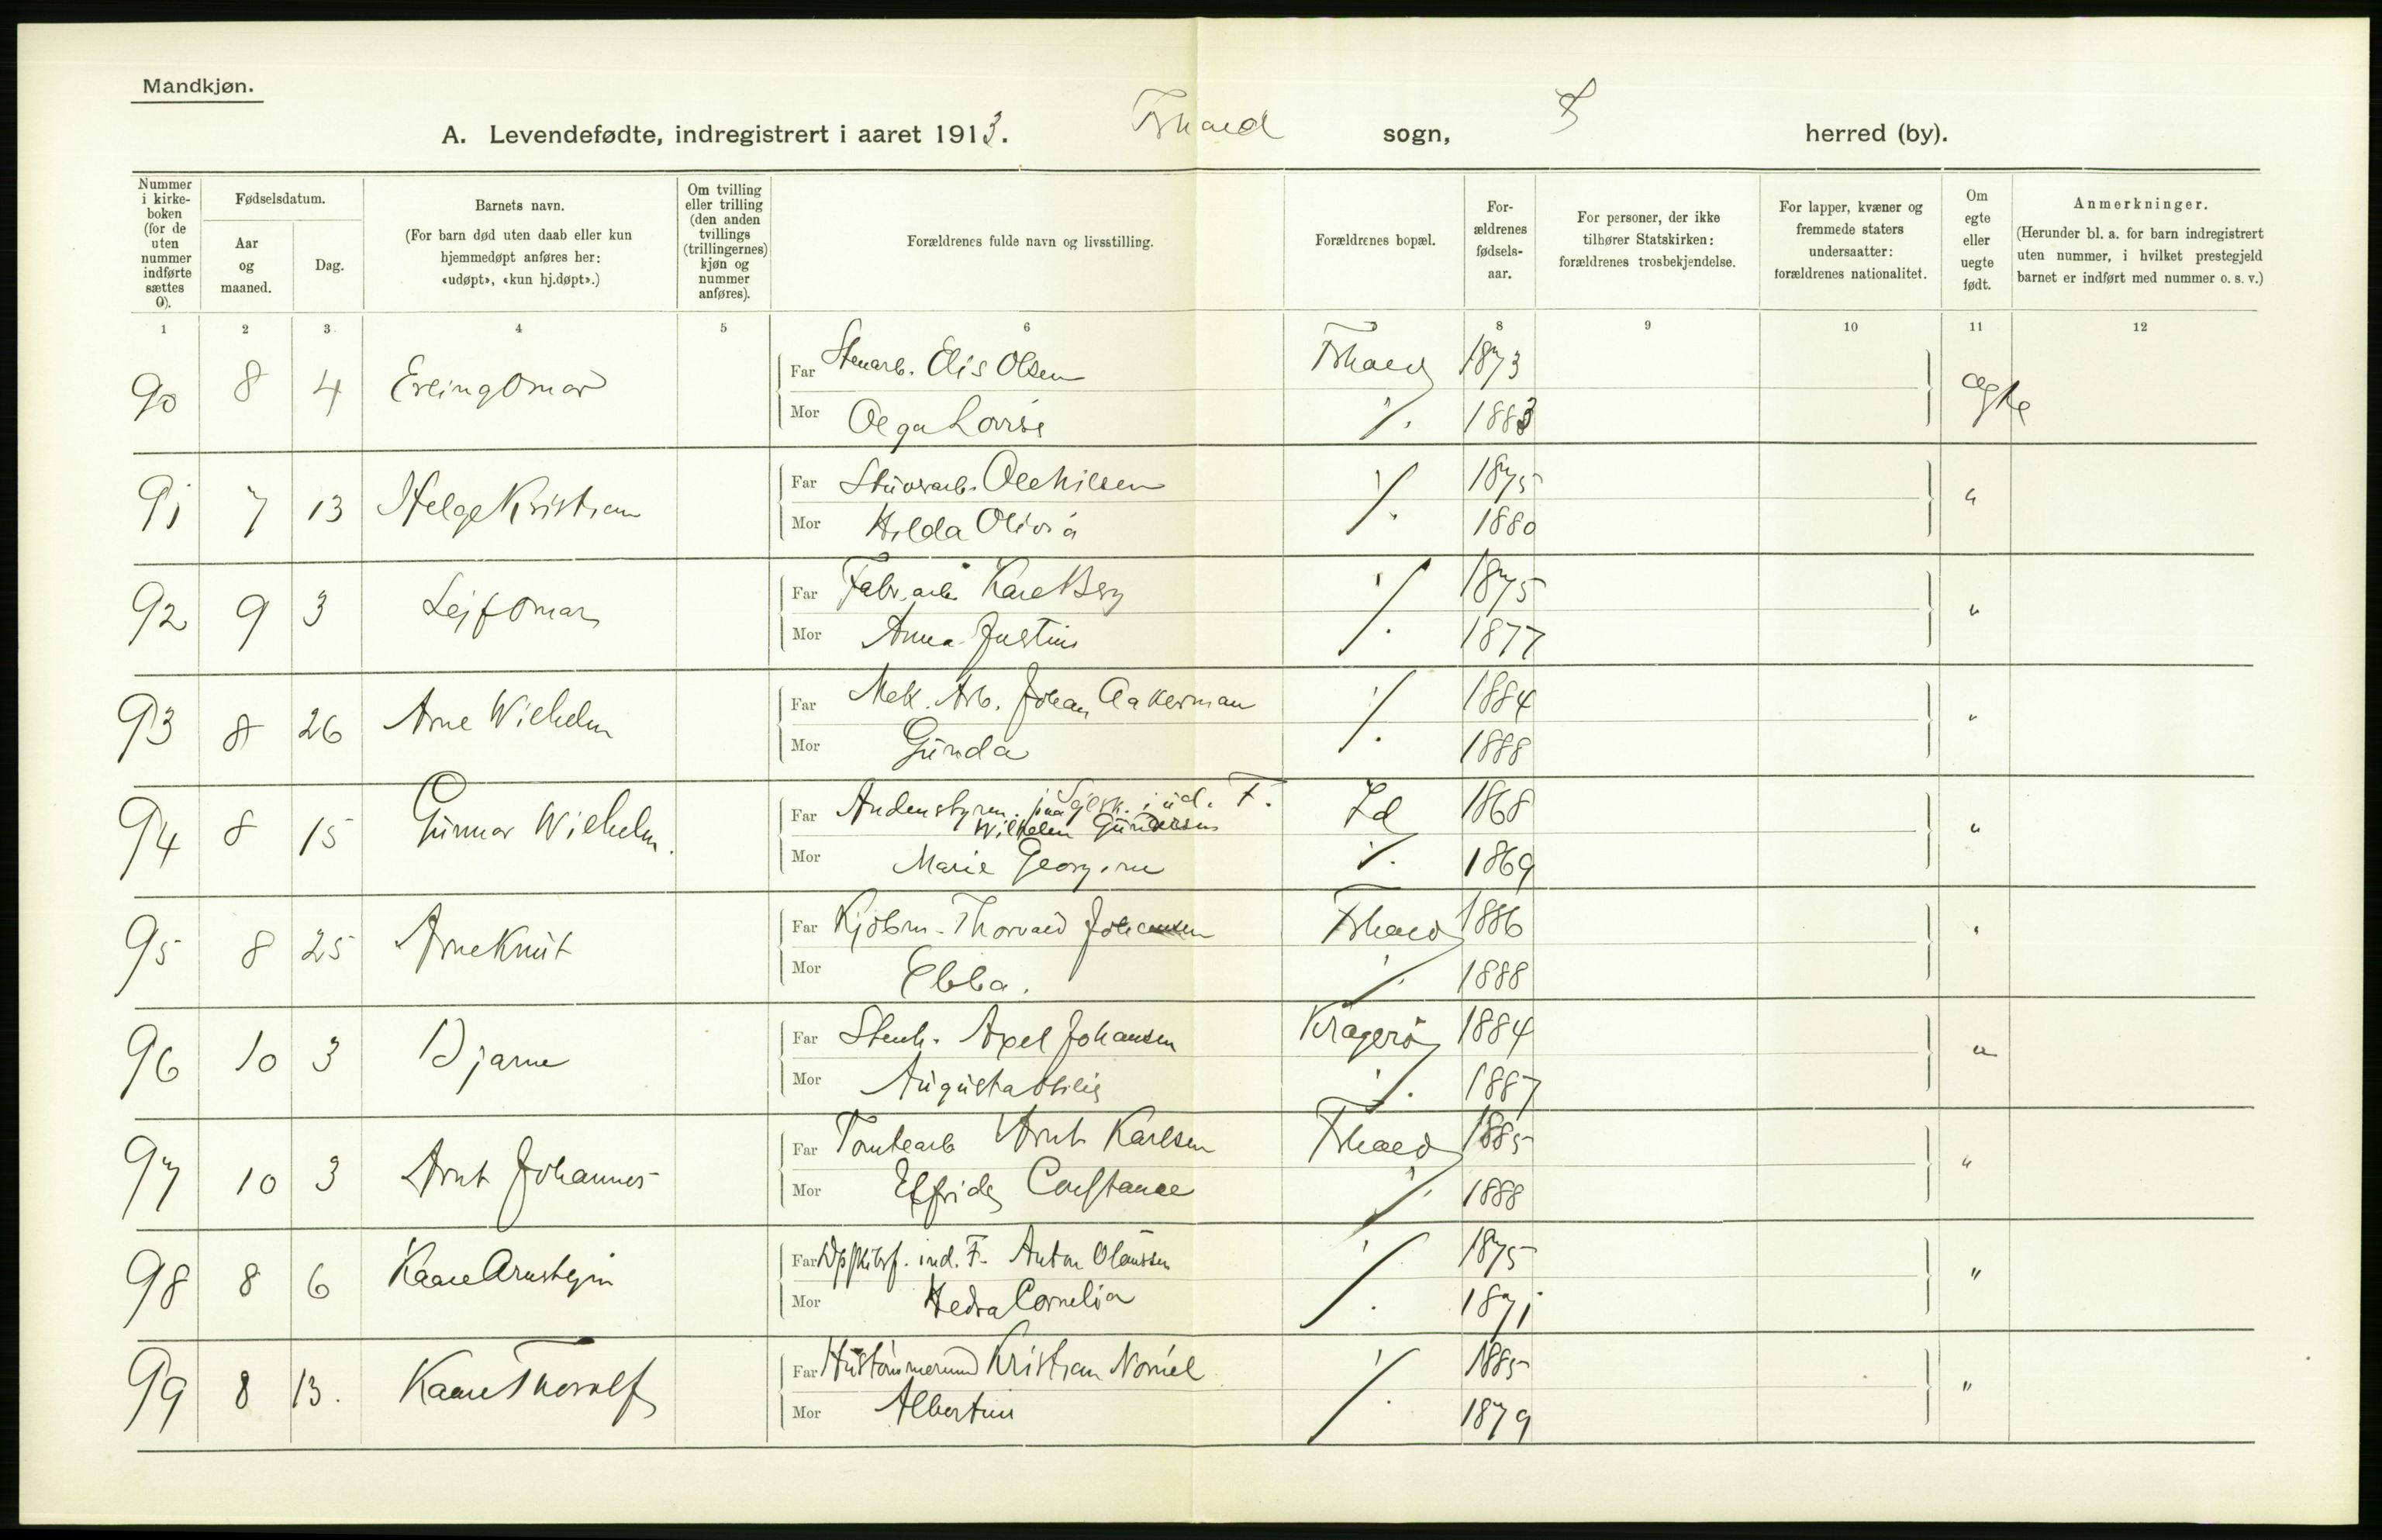 Mandkjøn.
A. Levendefødte, indregistrert i aaret 1913. Frhald sogn, F herred (by).
Nummer i kirkeboken (for de uten nummer indførte sættes 0).
Fødselsdatum.
Aar og maaned.
Dag.
Barnets navn.
(For barn død uten daab eller kun hjemmedøpt anføres her: «udøpt», «kun hj.døpt».)
Om tvilling eller trilling (den anden tvillings (trillingernes) kjøn og nummer anføres).
Forældrenes fulde navn og livsstilling.
Forældrenes bopæl.
Forældrenes fødselsaar.
For personer, der ikke tilhører Statskirken: forældrenes trosbekjendelse.
For lapper, kvæner og fremmede staters undersaatter: forældrenes nationalitet.
Om egte eller uegte født.
Anmerkninger.
(Herunder bl. a. for barn indregistrert uten nummer, i hvilket prestegjeld barnet er indført med nummer o. s. v.)
1 2 3 4 5 6 8 9 10 11 12
90 8 4 Erling Omar Far Stenarb. Elis Olsen Frhald 1873 ægte
Mor Olga Lovise 1883
91 7 13 Helge Kristian Far Stuerarb. Ole Nilsen 1875 "
Mor Hilda Olivia 1880
92 9 3 Leif Omar Far Fabr.arb. Karl Berg 1875 "
Mor Anna Justine 1877
93 8 26 Arne Wilhelm Far Mek. Arb. Johan Aakerman 1884 "
Mor Gunda 1888
94 8 15 Gunnar Wilhelm. Far Andenstyrm. paa Sejlsk. i ud. F. Id 1868 "
Wilhelm Gundersen
Mor Marie Georgine 1869
95 8 25 Arne Knut Far Kjøbm. Thorvald Johansen Frhald 1886 "
Mor Ebba. 1888
96 10 3 Bjarne Far Stenh. Axel Johansen Kragerø 1884 "
Mor Augusta Otilie 1887
97 10 3 Arnt Johannes Far Tomtearb Arnt Karlsen Frhald 1885 "
Mor Elfrida Constance 1888
98 8 6 Kaare Arnstejn Far ind. F. Anton Olaussen 1875 "
Mor Hedva Cornelia 1871
99 8 13. Kaare Thorolf Far Hustømmermd Kristian Norniel 1885 "
Mor Albertine 1879